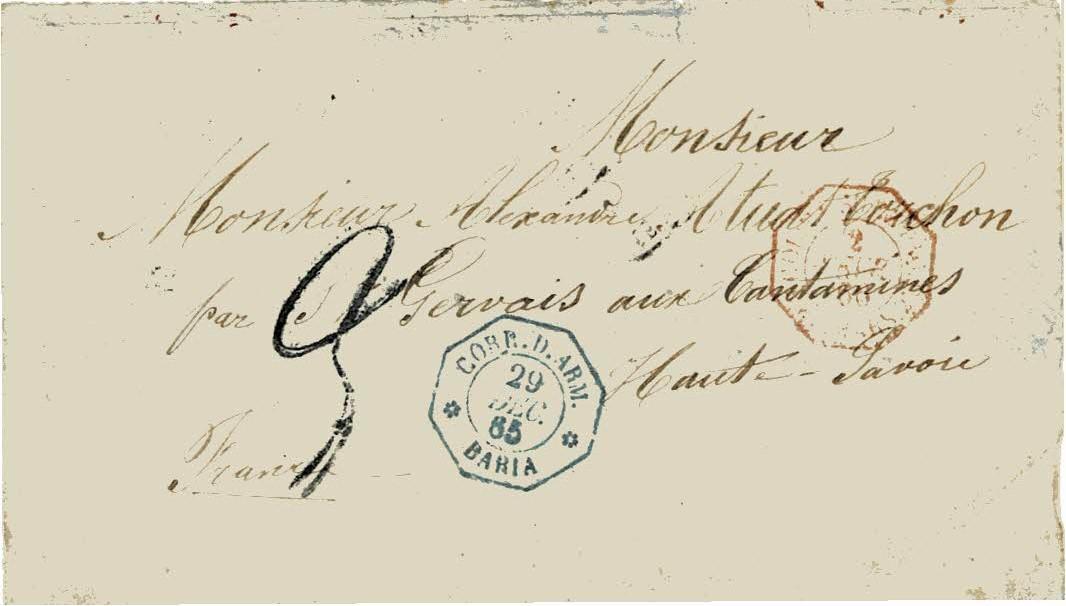 Monsieur
Monsieur Alexandre
par St Gervais aux Contamines
Haute-Savoie
France
CORR. D. ARM.
29
DEC.
65
BARIA
2